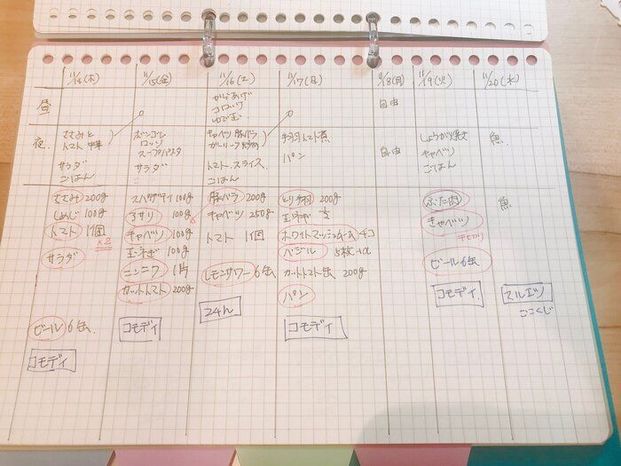 11/14(木)
11/15(金)
11/16(土)
11/17(日)
11/18(月)
11/19(火)
11/20(水)
昼
からあげ
コロッケ
ゆで玉
自由
夜
むね肉と
トマト中華
サラダ
ごはん
ボンゴレ
ロッソ
スープパスタ
サラダ
キャベツ豚バラ
トマトスライス
ごはん
手羽トマト煮
パン
自由
しょうが焼き
キャベツ
ごはん
魚
むね肉 200g
しめじ 100g
トマト 1個
×2
サラダ
ビール 6缶
コモディ
スパゲティ 100g
アサリ 100g
キャベツ 100g
玉ネギ 100g
ニンニク 1片
カットトマト 200g
コモディ
豚バラ 200g
キャベツ 250g
トマト 1個
レモンサワー 6缶
24h
とり手羽 200g
玉ネギ
ホワイトマッシュルーム 4コ
バジル 5枚
カットトマト缶 200g
パン
コモディ
ぶた肉
きゃべつ
ビール6缶
コモディ
魚
マルエツ